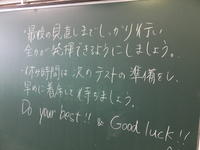 ・最後の見直しまでしっかり行い
全力が発揮できるようにしましょう。
・休み時間は次のテストの準備をし、
早めに着席して待ちましょう。
Do your best!! & Good luck!!